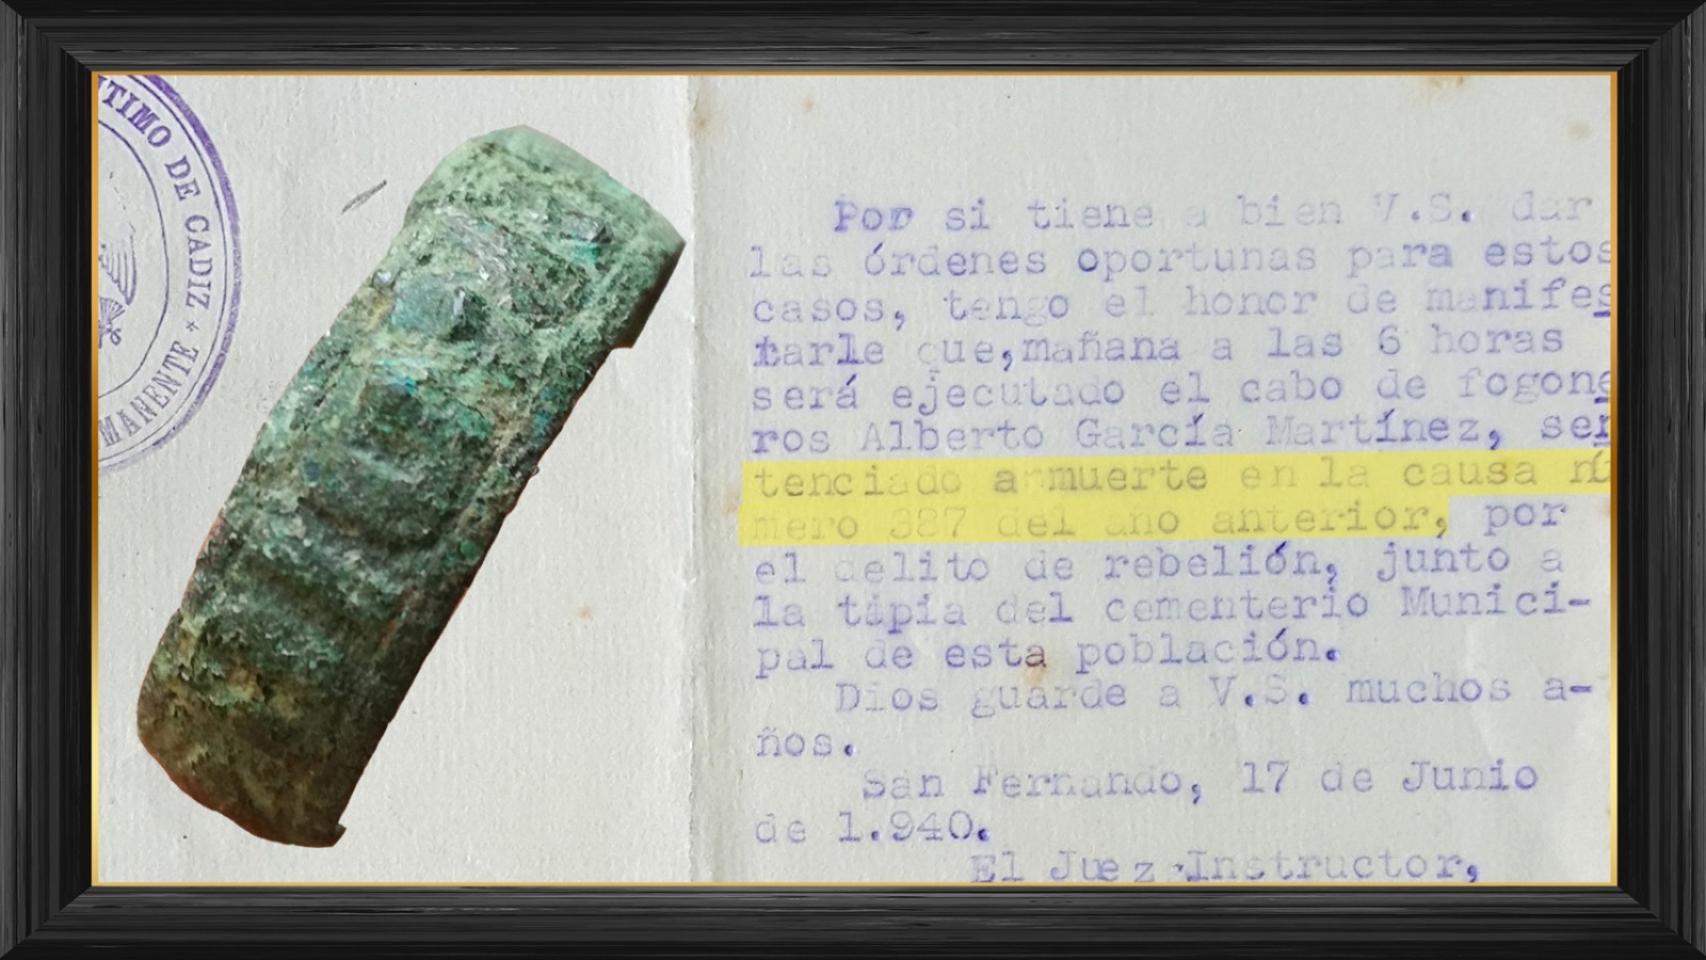 TIMO DE CADIZ * MANENTE
Por si tiene a bien V.S. dar
las órdenes oportunas para estos
casos, tengo el honor de manifes
tarle que,mañana a las 6 horas
será ejecutado el cabo de fogone
ros Alberto García Martínez, sen
tenciado a muerte en la causa nú
mero 387 del año anterior, por
el delito de rebelión, junto a
la tapia del cementerio Munici-
pal de esta población.
Dios guarde a V.S. muchos a-
ños.
San Fernando, 17 de Junio
de 1.940.
El Juez Instructor,